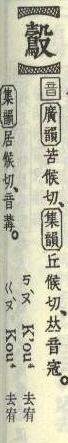 音 廣韻 苦候切、集韻 丘候切、𠀤音寇。
集韻 居候切、音冓。
ㄎㄡˋ K'ou⁴ 去宥
ㄍㄡˋ Kou⁴ 去宥